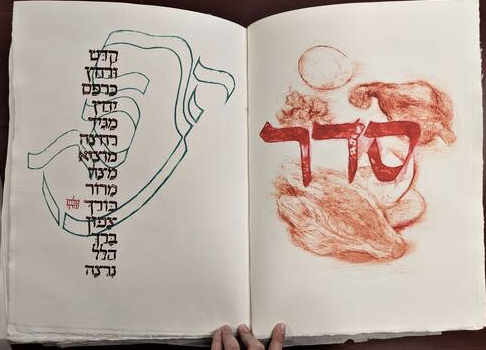 סדר
קדש
ורחץ
כרפס
יחץ
מגיד
רחצה
מוציא
מצה
מרור
כורך
צפון
ברך
הלל
נרצה